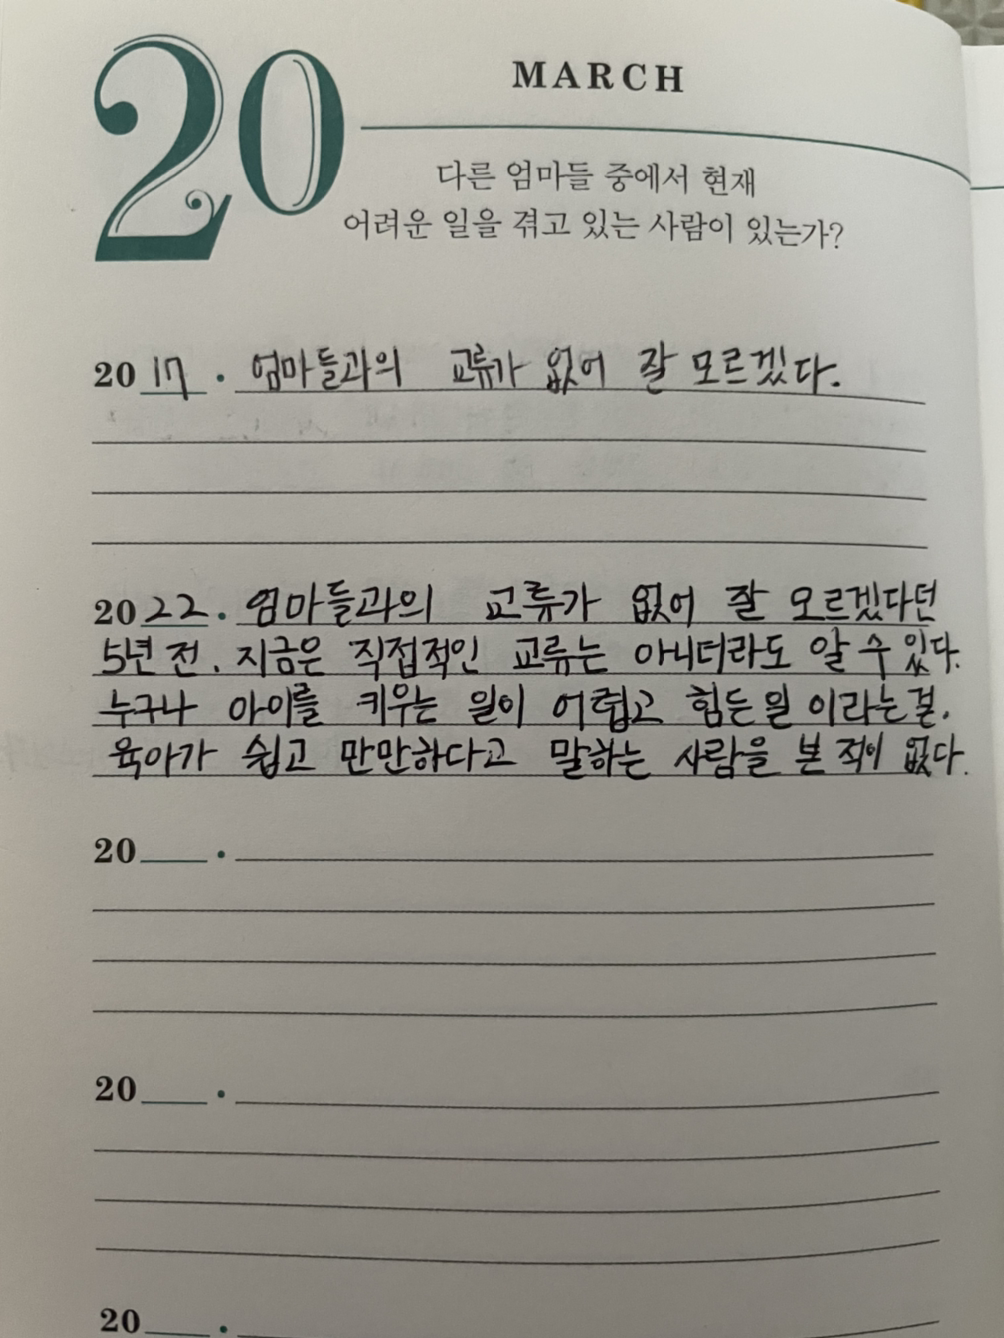 20
MARCH
다른 엄마들 중에서 현재
어려운 일을 겪고 있는 사람이 있는가?
2017 · 엄마들과의 교류가 없어 잘 모르겠다.
2022 · 엄마들과의 교류가 없어 잘 모르겠다던
5년 전. 지금은 직접적인 교류는 아니더라도 알 수 있다.
누구나 아이를 키우는 일이 어렵고 힘든일 이라는걸.
육아가 쉽고 만만하다고 말하는 사람을 본 적이 없다.
20 ·
20 ·
20 ·